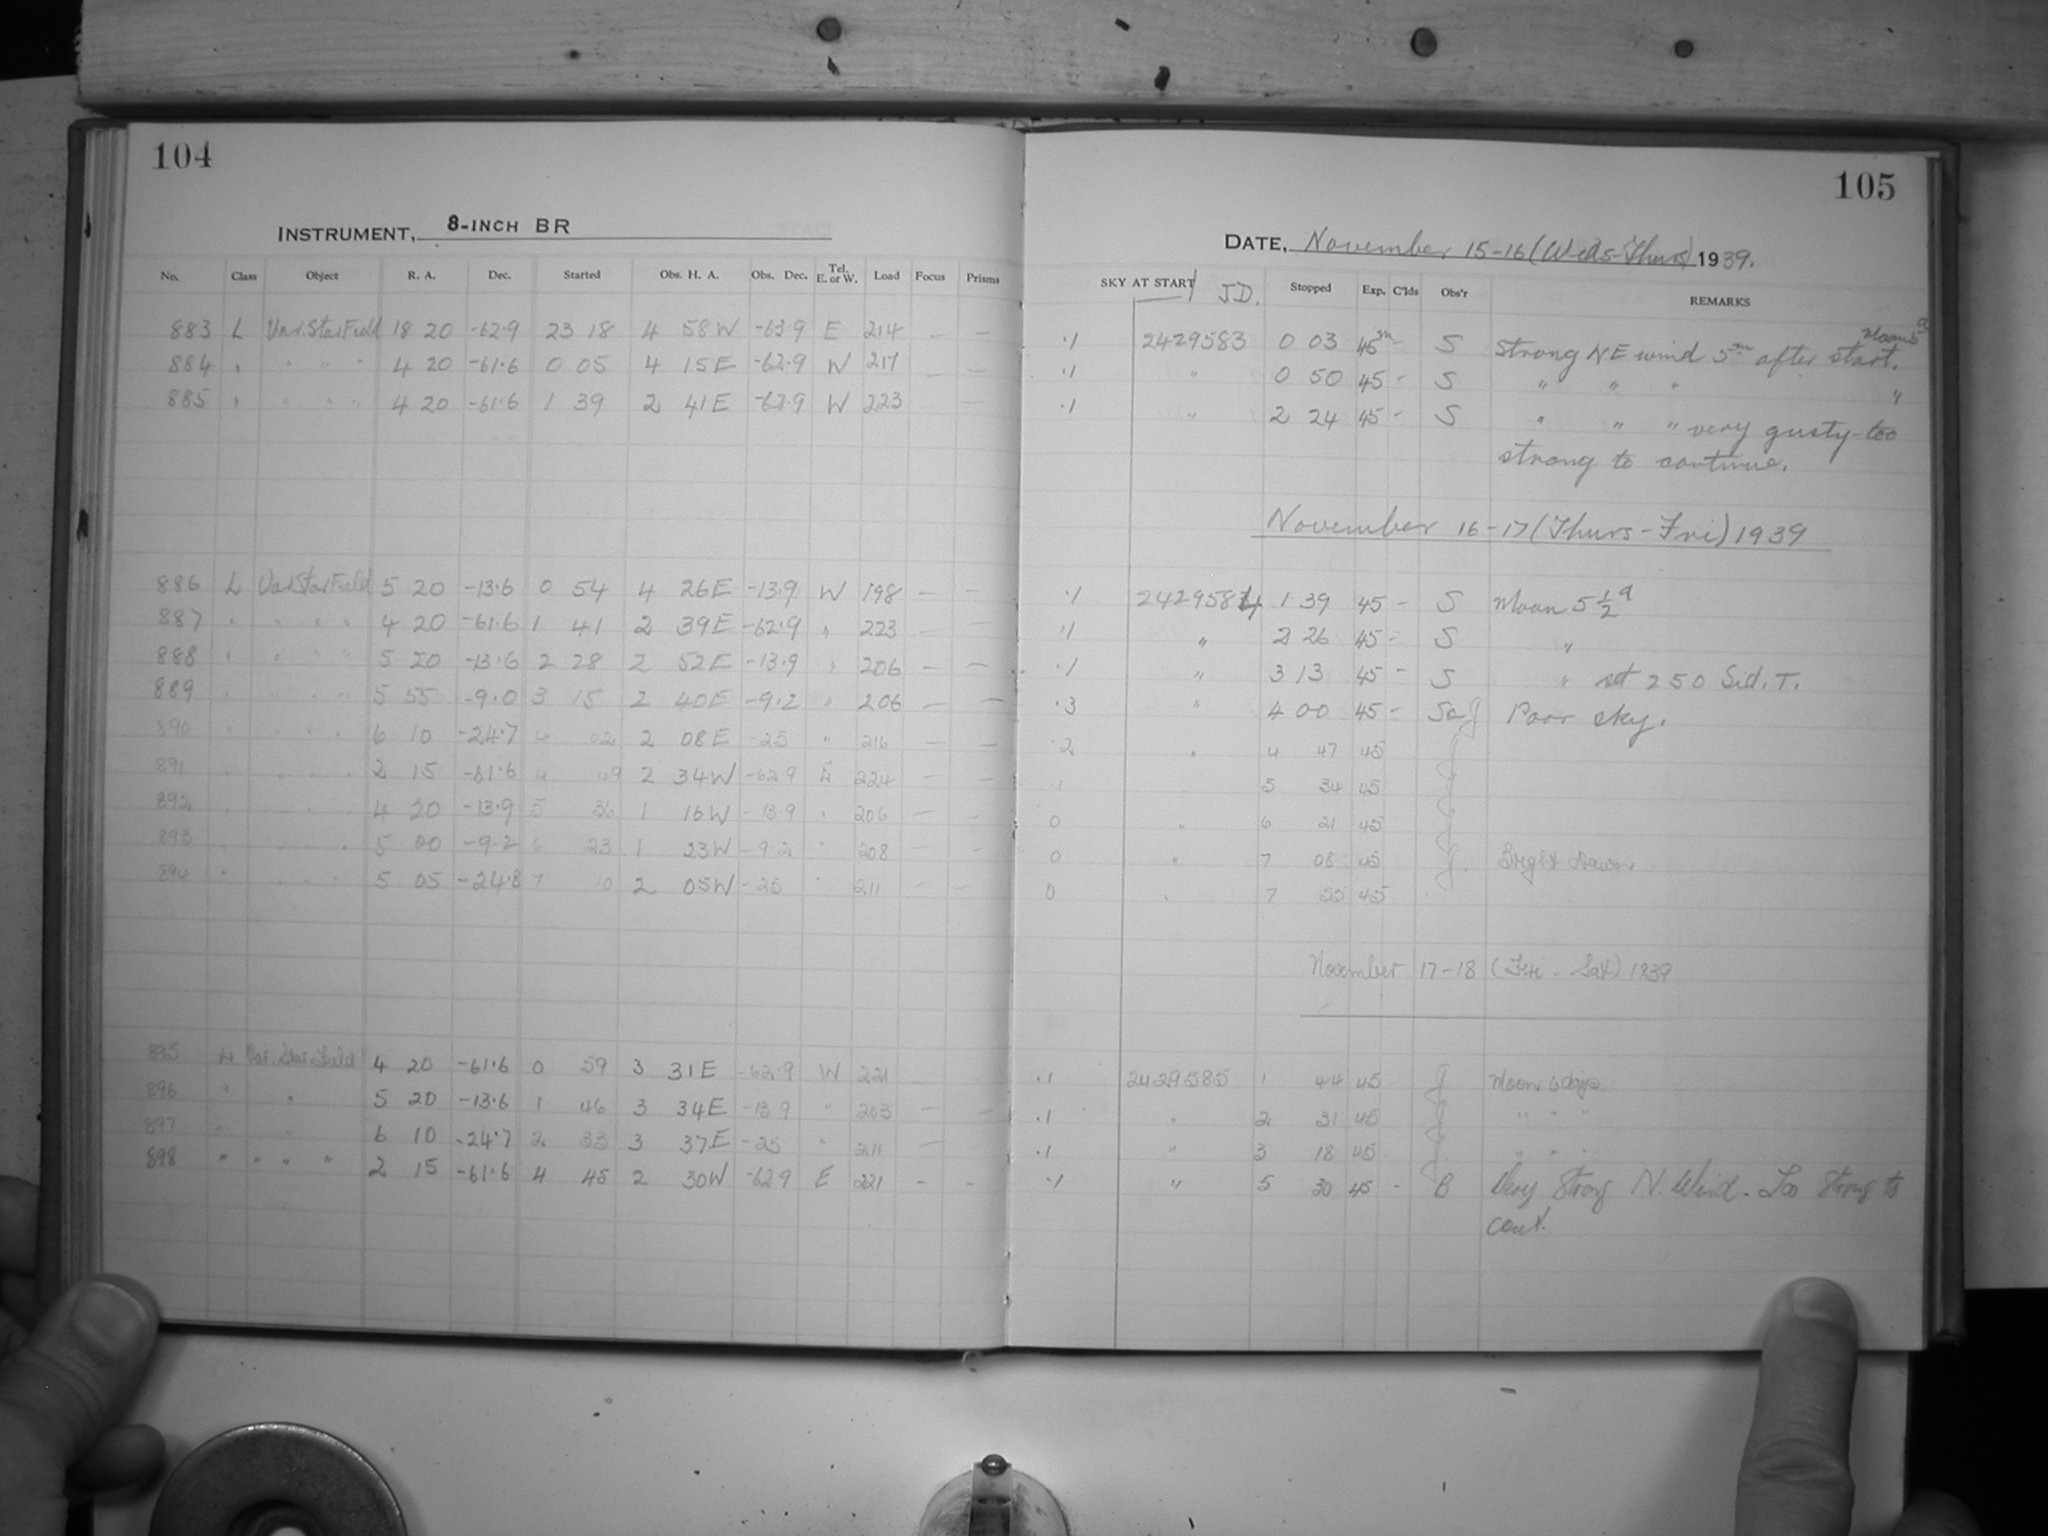 104
INSTRUMENT, 8-INCH BR
No. Class Object R. A. Dec. Started Obs. H. A. Obs. Dec. Tel. E. or W. Load Focus Prisms
883 L Var.Star Field 18 20 -62.9 23 18 4 58W -63.9 E 214 — —
884 " " " " 4 20 -61.6 0 05 4 15E -62.9 W 217 — —
885 " " " " 4 20 -61.6 1 39 2 41E -62.9 W 223 — —
886 L Var.Star Field 5 20 -13.6 0 54 4 26E -13.9 W 198 — —
887 " " " " 4 20 -61.6 1 41 2 39E -62.9 " 223 — —
888 " " " " 5 20 -13.6 2 28 2 52E -13.9 " 206 — —
889 " " " " 5 55 -9.0 3 15 2 40E -9.2 " 206 — —
890 " " " " 6 10 -24.7 4 02 2 08E -25 " 216 — —
891 " " " " 2 15 -61.6 4 49 2 34W -62.9 E 224 — —
892 " " " " 4 20 -13.9 5 36 1 16W -13.9 " 206 — —
893 " " " " 5 00 -9.2 6 23 1 23W -9.2 " 208 — —
894 " " " " 5 05 -24.8 7 10 2 05W -25 " 211 — —
895 L Var. Star Field 4 20 -61.6 0 59 3 31E -62.9 W 221
896 " " 5 20 -13.6 1 46 3 34E -13.9 " 203 — —
897 " " 6 10 -24.7 2 33 3 37E -25 " 211 —
898 " " " " 2 15 -61.6 4 45 2 30W -62.9 E 221 - -
105
DATE, November 15-16 (Weds-Thurs) 1939.
SKY AT START J.D. Stopped Exp. C'lds Obs'r REMARKS
.1 2429583 0 03 45m - S Strong NE wind 5m after start. Moon 5d
.1 " 0 50 45 - S " " " "
.1 " 2 24 45 - S " " " very gusty-too
strong to continue.
November 16-17 (Thurs-Fri) 1939
.1 2429584 1 39 45 - S Moon 5 1/2 d
.1 " 2 26 45 - S "
.1 " 3 13 45 - S " set 2 50 Sid. T.
.3 " 4 00 45 - Poor sky.
.2 " 4 47 45 J
.1 5 34 45 J
0 " 6 21 45 J
0 " 7 08 45 J. Bright Dawn
0 " 7 55 45
November 17-18 (Fri - Sat) 1939
.1 2429585 1 44 45 J Moon 6 days
.1 " 2 31 45 J " " "
.1 " 3 18 45 J " " "
.1 " 5 30 45 - B Very Strong N. Wind. Too Strong to
cont.